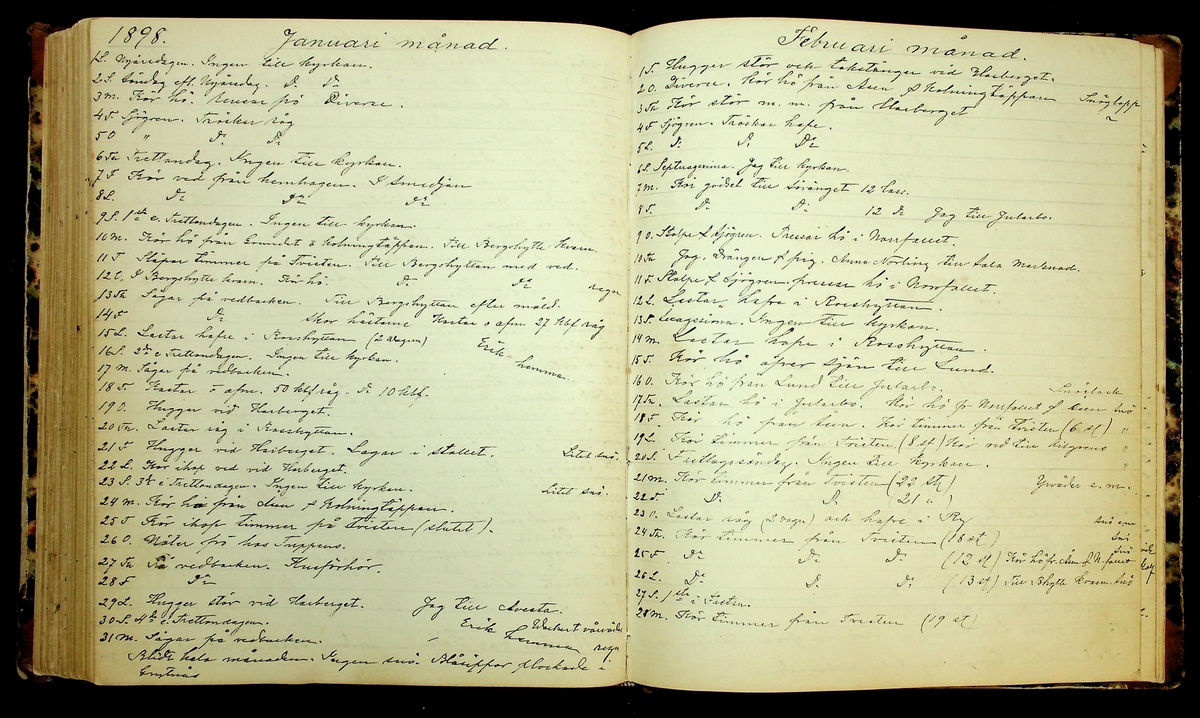 1898. Januari månad.
1 L. Nyårsdagen. Ingen till kyrkan.
2 S. Söndag eft. Nyårsdag. D:o D:o
3 M. Kör hö. Rensar frö Diverse.
4 T Sjögren. Tröskar råg
5 O " D:o D:o
6 Th Trettondag. Ingen till kyrkan.
7 F Kör ved från hemhagen. I smedjan
8 L. D:o D:o D:o
9 S. 1sta e. Trettondagen. Ingen till kyrkan.
10 M. Kör hö från Grundet & Kolningtäppan. Till Bergshytte kvarn
11 T Släpar timmer på Tvisten. Till Bergshyttan med ved.
12 O. I Bergshytte kvarn. Kör hö. D:o D:o regn
13 Th Sågar på vedbacken. Till Bergshyttan efter mäld.
14 F D:o Skor hästarne Kastar o afm. 27 kbf råg
15 L. Lastar hafre i Rosshyttan (2 vagn) Erik hemma
16 S. 2dra e Trettondagen. Ingen till kyrkan.
17 M. Sågar på vedbacken.
18 T Kastar o afm. 50 kbf råg. D:o 10 kbf.
19 O. Hugger vid Harberget.
20 Th. Lastar råg i Rosshyttan.
21 F Hugger vid Harberget. Lagar i stallet. Litet snö.
22 L. Kör ihop ved vid Harberget.
23 S. 3dje e Trettondagen. Ingen till kyrkan. Litet snö.
24 M. Kör hö från Åsen & Kolningtäppan.
25 T Kör ihop timmer på Tvisten (slutet).
26 O. Mäter frö hos Treppens.
27 Th På vedbacken. Husförhör.
28 F D:o
29 L. Hugger stör vid Harberget. Jag till Avesta.
30 S. 4de e. Trettondagen. Erik hemma Vackert vårväder
31 M. Sågar på vedbacken. regn
Blidt hela månaden. Ingen snö. Blåsippor plockade i
Grytnäs
Februari månad.
1 T. Hugger stör och takstänger vid Harberget.
2 O. Diverse. Kör hö från Åsen & Kolningtäppan Snöglopp
3 Th Kör stör m. m. från Harberget "
4 F Sjögren. Tröskar hafre.
5 L. D:o D:o D:o
6 S. Septuagesima. Jag till kyrkan.
7 M. Kör gödsel till svänget 12 lass.
8 T. D:o D:o 12 D:o Jag till Jularbo.
9 O. Stolpe & Sjögren. Pressar hö i Norrfallet.
10 Th Jag, Drängen & pig. Anna Norling till Sala Marknad.
11 F Stolpe & Sjögren pressa hö i Norrfallet.
12 L. Lastar hafre i Rosshyttan.
13 S. Sexagesima. Ingen till kyrkan.
14 M Lastar hafre i Rosshyttan.
15 T. Kör hö öfver sjön till Lund.
16 O. Kör hö från Lund till Jularbo.
17 Th. Lastar hö i Jularbo. Kör hö fr Norrfallet & Åsen Snö
18 F. Kör hö från Åsen. Kör timmer från Tvisten (6 st) "
19 L. Kör timmer från Tvisten (8 st) Kör ved till "
20 S. Fastlagssöndag. Ingen till kyrkan. "
21 M. Kör timmer från Tvisten (22 st) Yrväder e. m.
22 T. D:o D:o 21 " )
23 O. Lastar råg (2 vagn) och hafre i Ry
24 Th. Kör timmer från Tvisten (18 st) Snö
25 F. D:o D:o D:o (12 st) Kör hö fr. Åsen & N.fallet Snö
26 L. D:o D:o D:o (13 st) Till Bhytte kvarn. Snö
27 S. 1sta i Fastan.
28 M. Kör timmer från Tvisten (19 st)